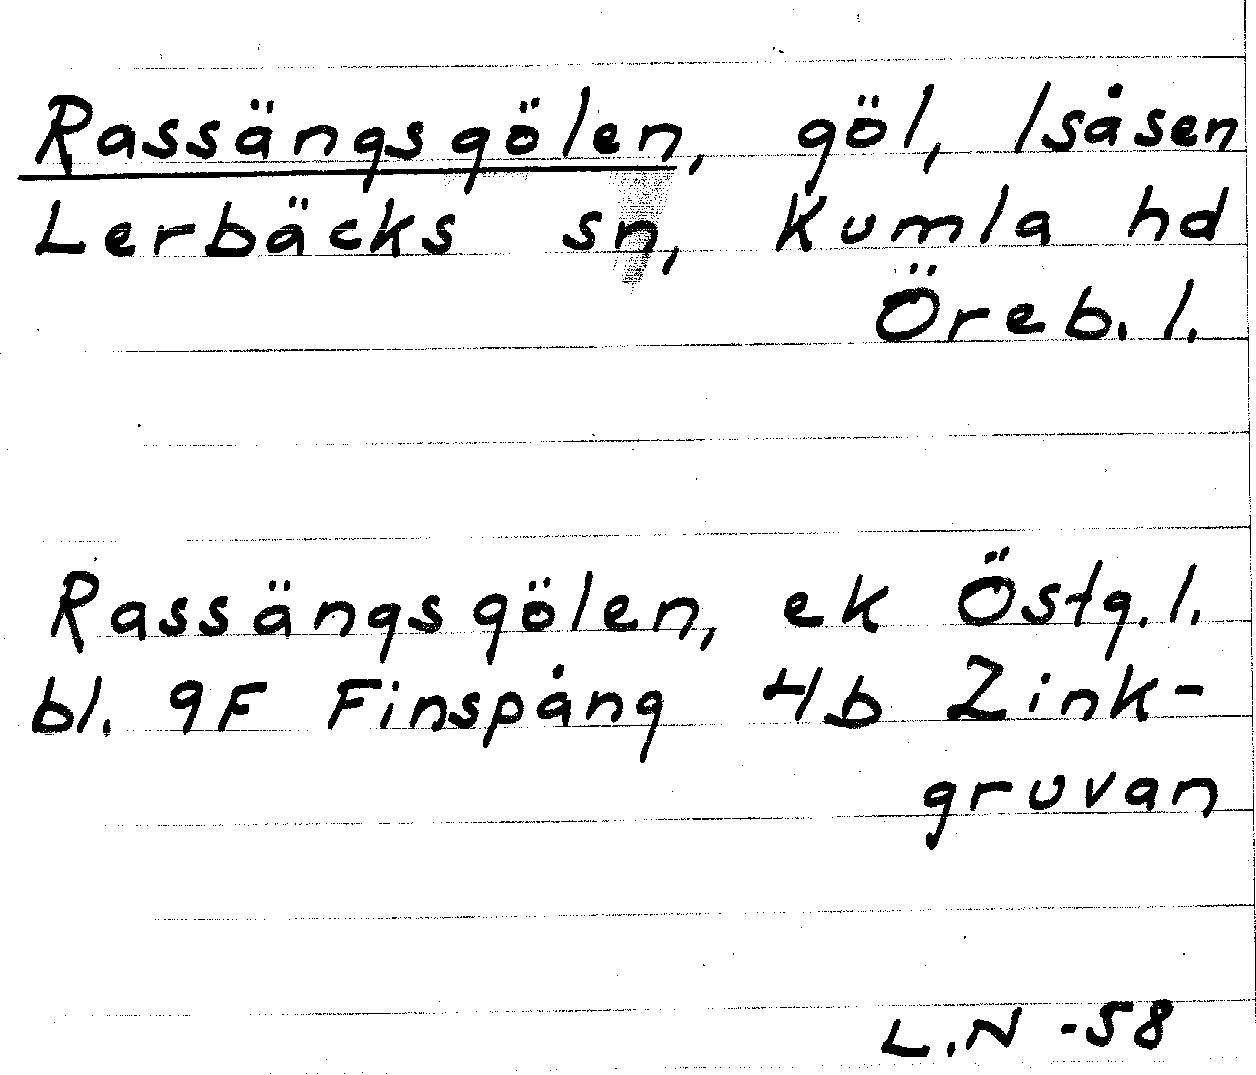 Rassängsgölen, göl, Isåsen
Lerbäcks sn, Kumla hd
Öreb. l.
Rassängsgölen, ek Östg. l.
bl. 9F Finspång 4b Zink-
gruvan
L.N -58